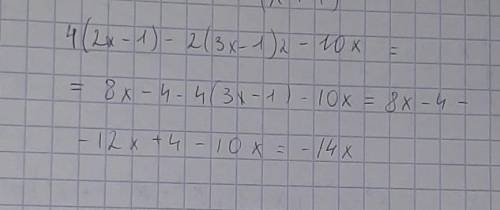 4(2x-1) - 2(3x-1)2 - 10x =
= 8x - 4 - 4(3x-1) - 10x = 8x - 4 -
- 12x + 4 - 10x = -14x